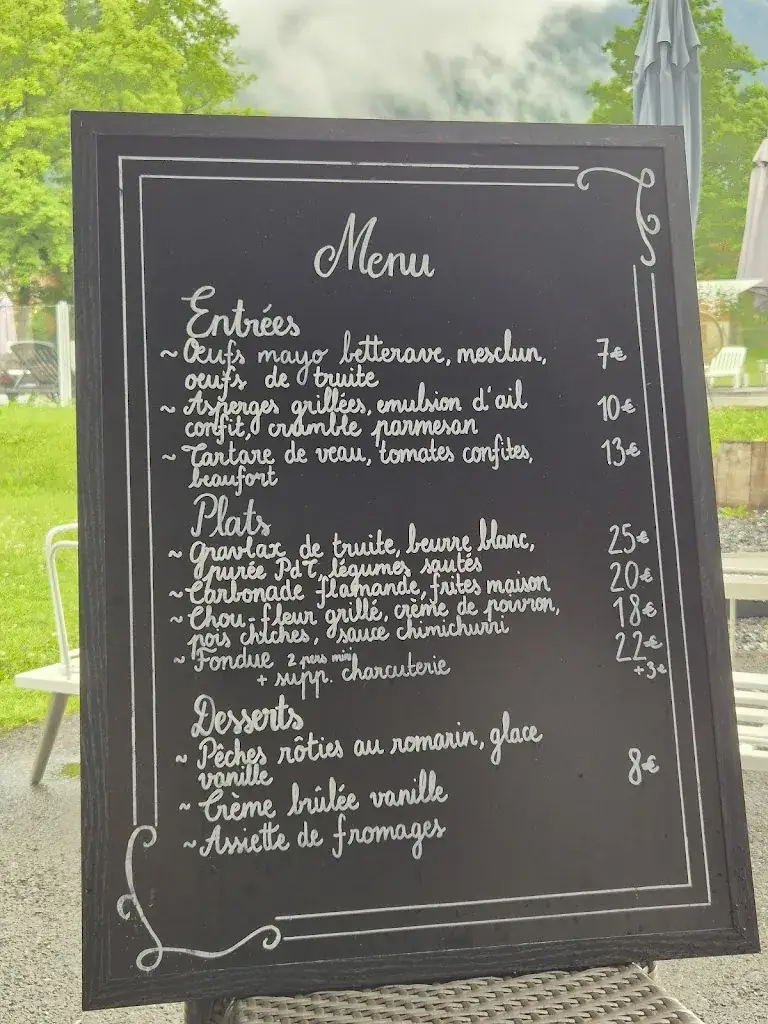 Menu
Entrées
~ Oeufs mayo betterave, mesclun, 7€
oeufs de truite
~ Asperges grillées, emulsion d'ail 10€
confit, crumble parmesan
~ Tartare de veau, tomates confites, 13€
beaufort
Plats
~ Gravlax de truite, beurre blanc, 25€
purée PdT, légumes sautés
~ Carbonade flamande, frites maison 20€
~ Chou-fleur grillé, crème de poivron, 18€
pois chiches, sauce chimichurri
~ Fondue 2 pers mini 22€
+ supp. charcuterie +3€
Desserts
~ Pêches rôties au romarin, glace
vanille 8€
~ Crème brûlée vanille
~ Assiette de fromages